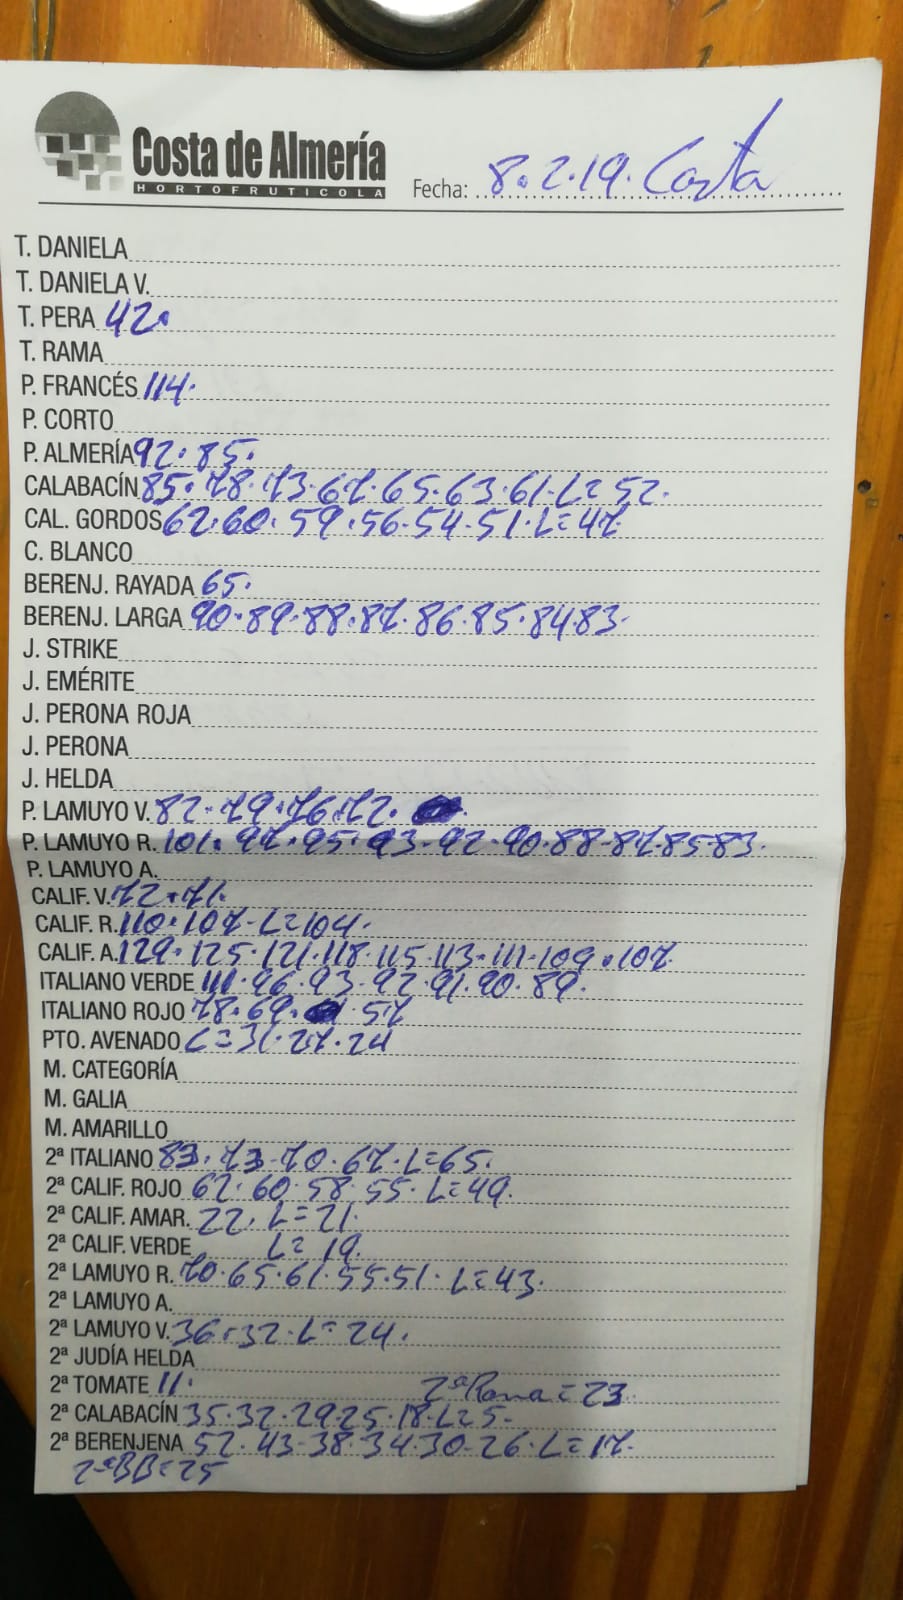 Costa de Almería
HORTOFRUTICOLA
Fecha: 8.2.19. Costa
T. DANIELA
T. DANIELA V.
T. PERA 42.
T. RAMA
P. FRANCÉS 114.
P. CORTO
P. ALMERÍA 92.85.
CALABACÍN 85.78.73.67.65.63.61.L=52.
CAL. GORDOS 62.60.59.56.54.51.L=47
C. BLANCO
BERENJ. RAYADA 65.
BERENJ. LARGA 90.89.88.87.86.85.84.83.
J. STRIKE
J. EMÉRITE
J. PERONA ROJA
J. PERONA
J. HELDA
P. LAMUYO V. 82.79.76.72.
P. LAMUYO R. 101.97.95.93.92.90.88.87.85.83.
P. LAMUYO A.
CALIF. V. 72.71.
CALIF. R. 110.107-L=104.
CALIF. A. 129.125.121.118.115.113.111.109.107.
ITALIANO VERDE 111.96.93.92.91.90.89.
ITALIANO ROJO 78.69. .57
PTO. AVENADO L=31.27.24
M. CATEGORÍA
M. GALIA
M. AMARILLO
2ª ITALIANO 83.73-70.67.L=65.
2ª CALIF. ROJO 62.60.58.55.L=49.
2ª CALIF. AMAR. 22.L=21.
2ª CALIF. VERDE L=19.
2ª LAMUYO R. 70.65.61.55.51.L=43.
2ª LAMUYO A.
2ª LAMUYO V. 36.32.L=24.
2ª JUDÍA HELDA
2ª TOMATE 11. 2ª Rama=23
2ª CALABACÍN 35.32.29.25.18.L=5-
2ª BERENJENA 52.43-38.34.30-26.L=17.
2ª BB=25